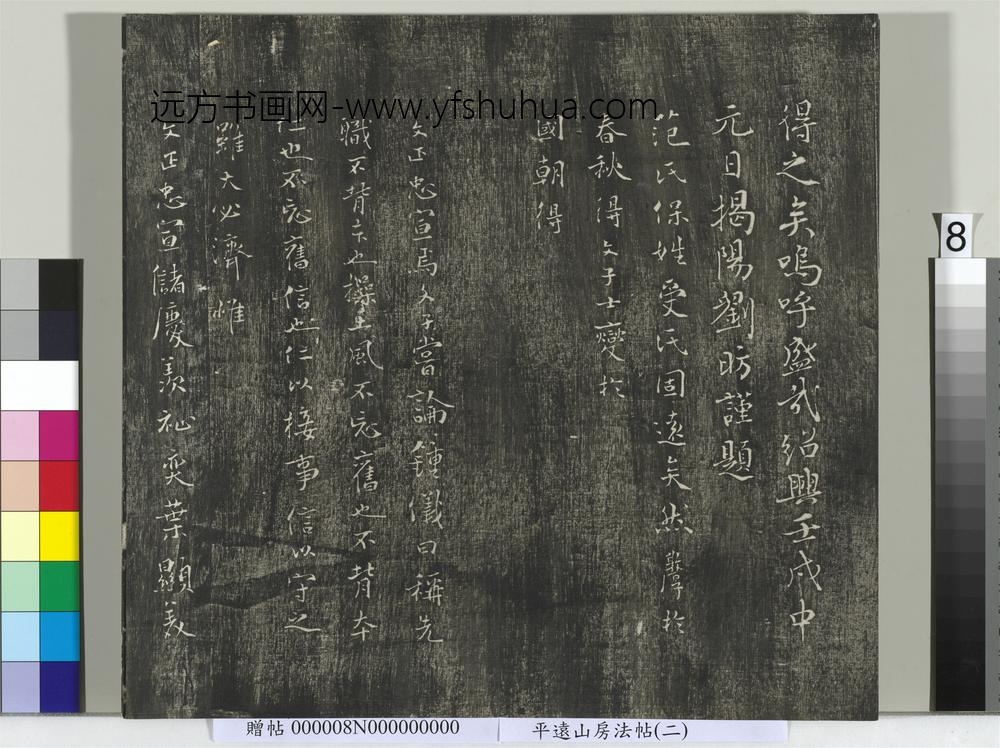 得之矣嗚呼盛哉紹興壬戌中
元日揭陽劉昉謹題
范氏保姓受氏固遠矣然於
春秋得文子士燮於
國朝得
文正忠宣焉文子嘗論鍾儀曰稱先
職不背本也操土風不忘舊也不背本
仁也不忘舊信也仁以接事信以守之
雖大必濟惟
文正忠宣儲慶羨祉奕葉顯美
远方书画网-www.yfshuhua.com
8
贈帖 000008N000000000
平遠山房法帖(二)